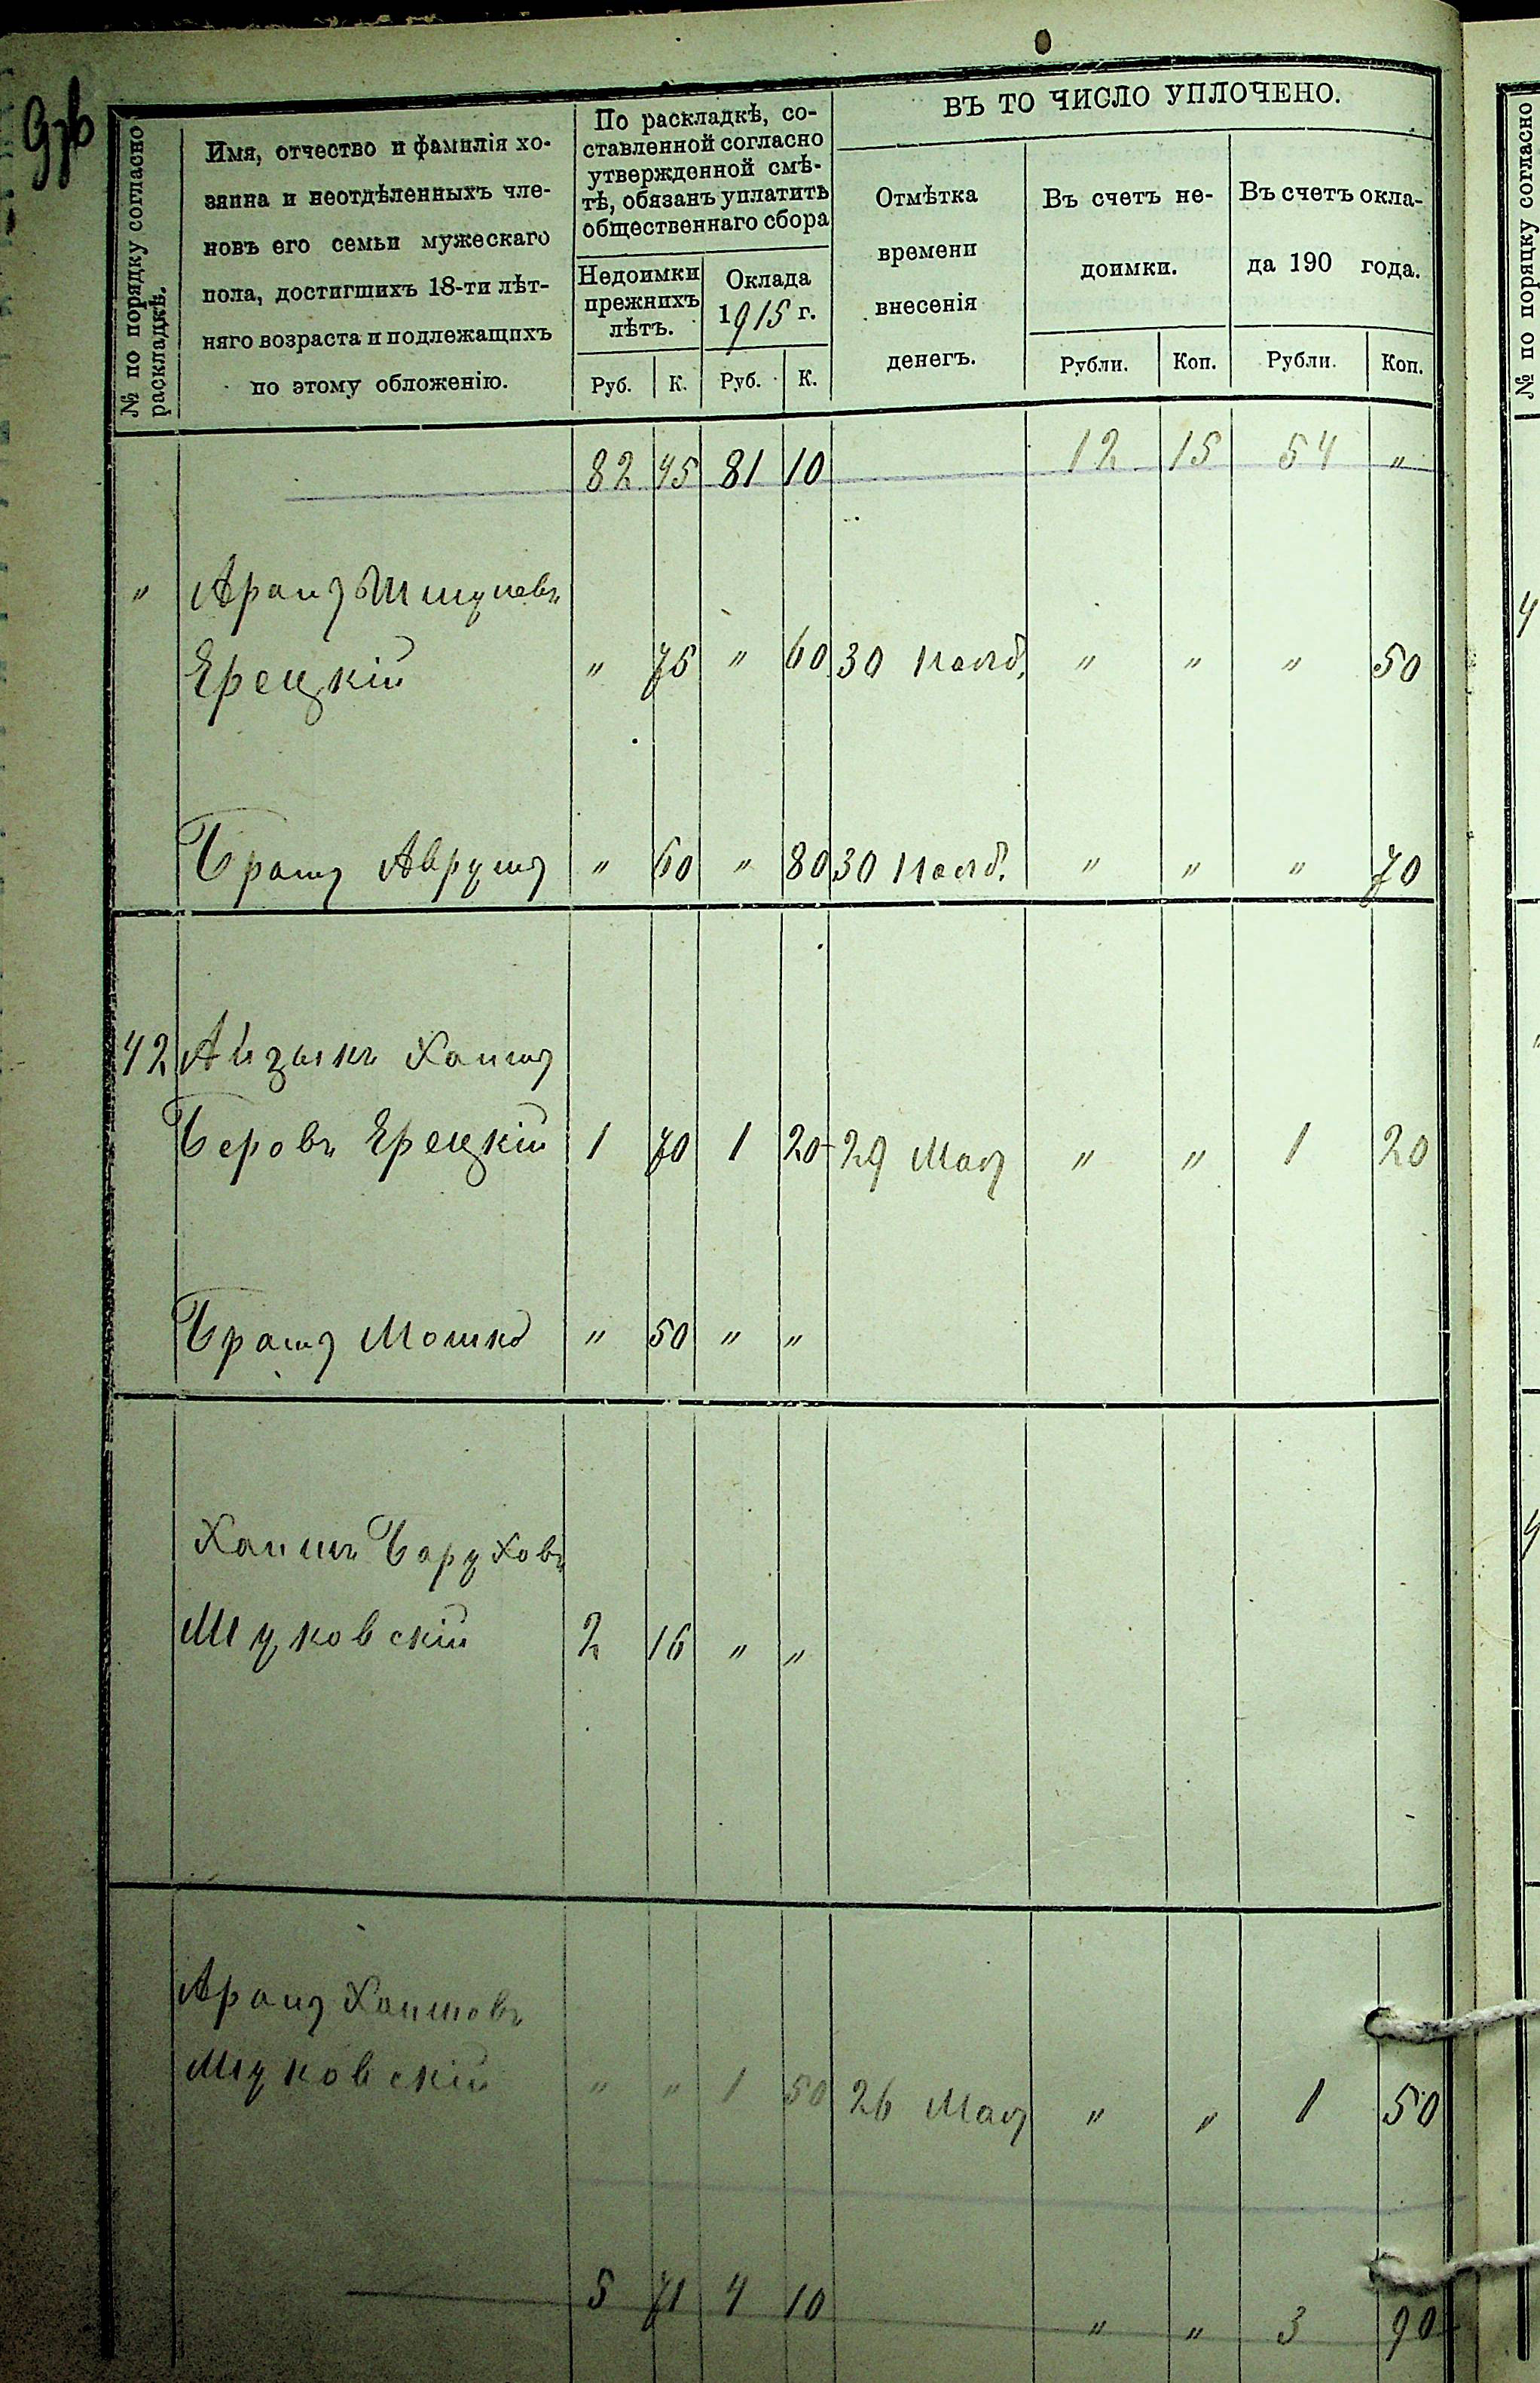 № по порядку согласно раскладкѣ.
Имя, отчество и фамилія хо-
заина и неотдѣленныхъ чле-
новъ его семьи мужескаго
пола, достигшихъ 18-ти лѣт-
няго возраста и подлежащихъ
по этому обложенію.
По раскладкѣ, со-
ставленной согласно
утвержденной смѣ-
тѣ, обязанъ уплатить
общественнаго сбора
Недоимки
прежнихъ
лѣтъ.
Оклада
1915 г.
Руб. К. Руб. К.
ВЪ ТО ЧИСЛО УПЛОЧЕНО.
Отмѣтка
времени
внесенія
денегъ.
Въ счетъ не-
доимки.
Рубли. Коп.
Въ счетъ окла-
да 190 года.
Рубли. Коп.
82 45 81 10 12 15 54 "
" Аронъ
Ерецкій " 75 " 60 30 " " " 50
Братъ Аврумъ " 60 " 80 30 " " " 70
42 Айзыкъ Хаимъ
Беровъ Ерецкій 1 70 1 20 29 Мая " " 1 20
Братъ Мошко " 50 " "
Хаимъ Баруховъ
Муковскій 2 16 " "
Аронъ Хаимовъ
Муковскій " " 1 50 26 Мая " " 1 50
5 71 4 10 " " 3 90
№ по порядку согласно